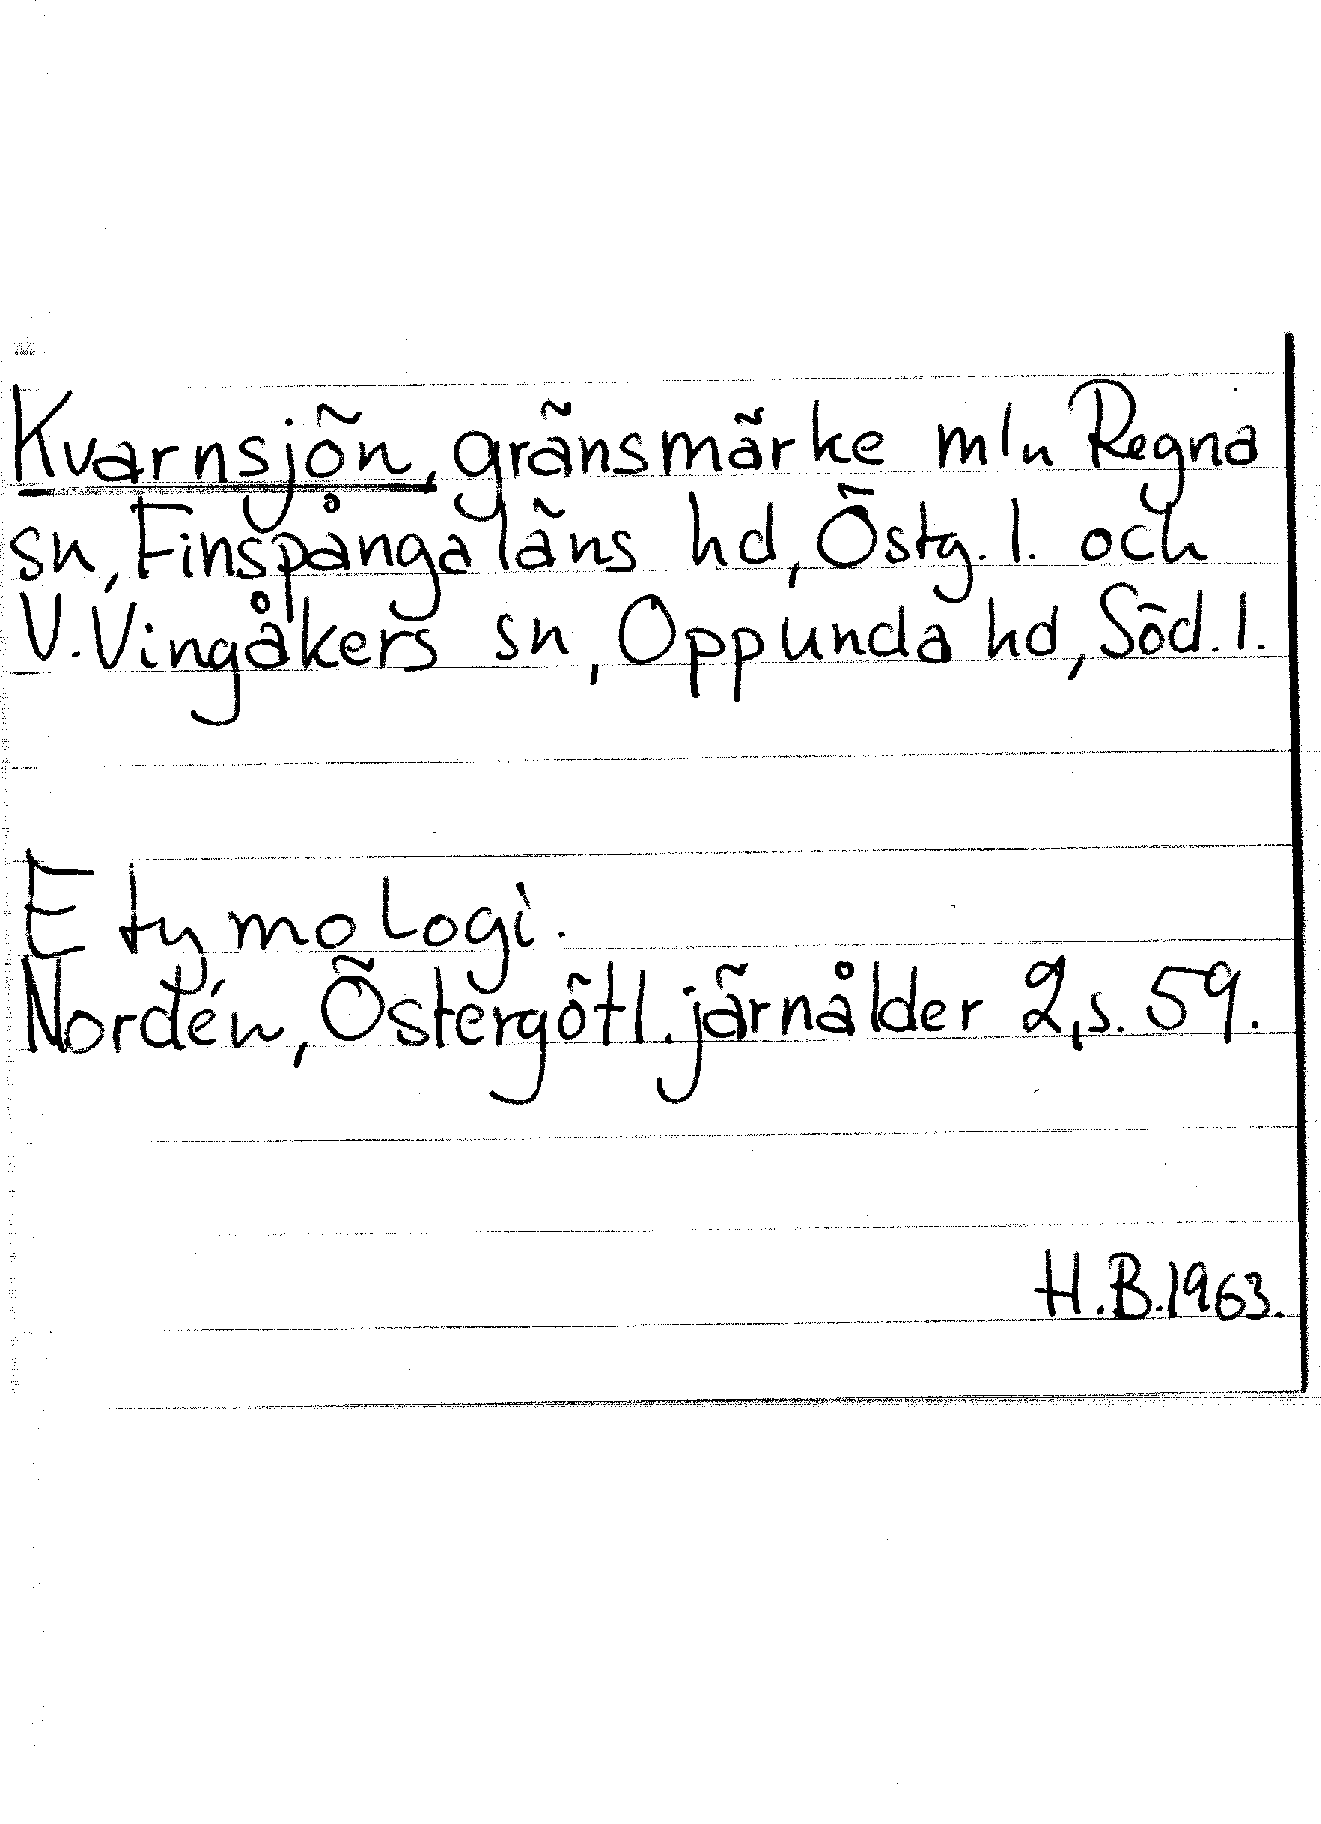 Kvarnsjön, gränsmärke mln Regna
sn, Finspånga läns hd, Östg. l. och
V. Vingåkers sn, Oppunda hd, Söd. l.
Etymologi.
Nordén, Östergötl. järnålder 2, s. 59.
H.B.1963.